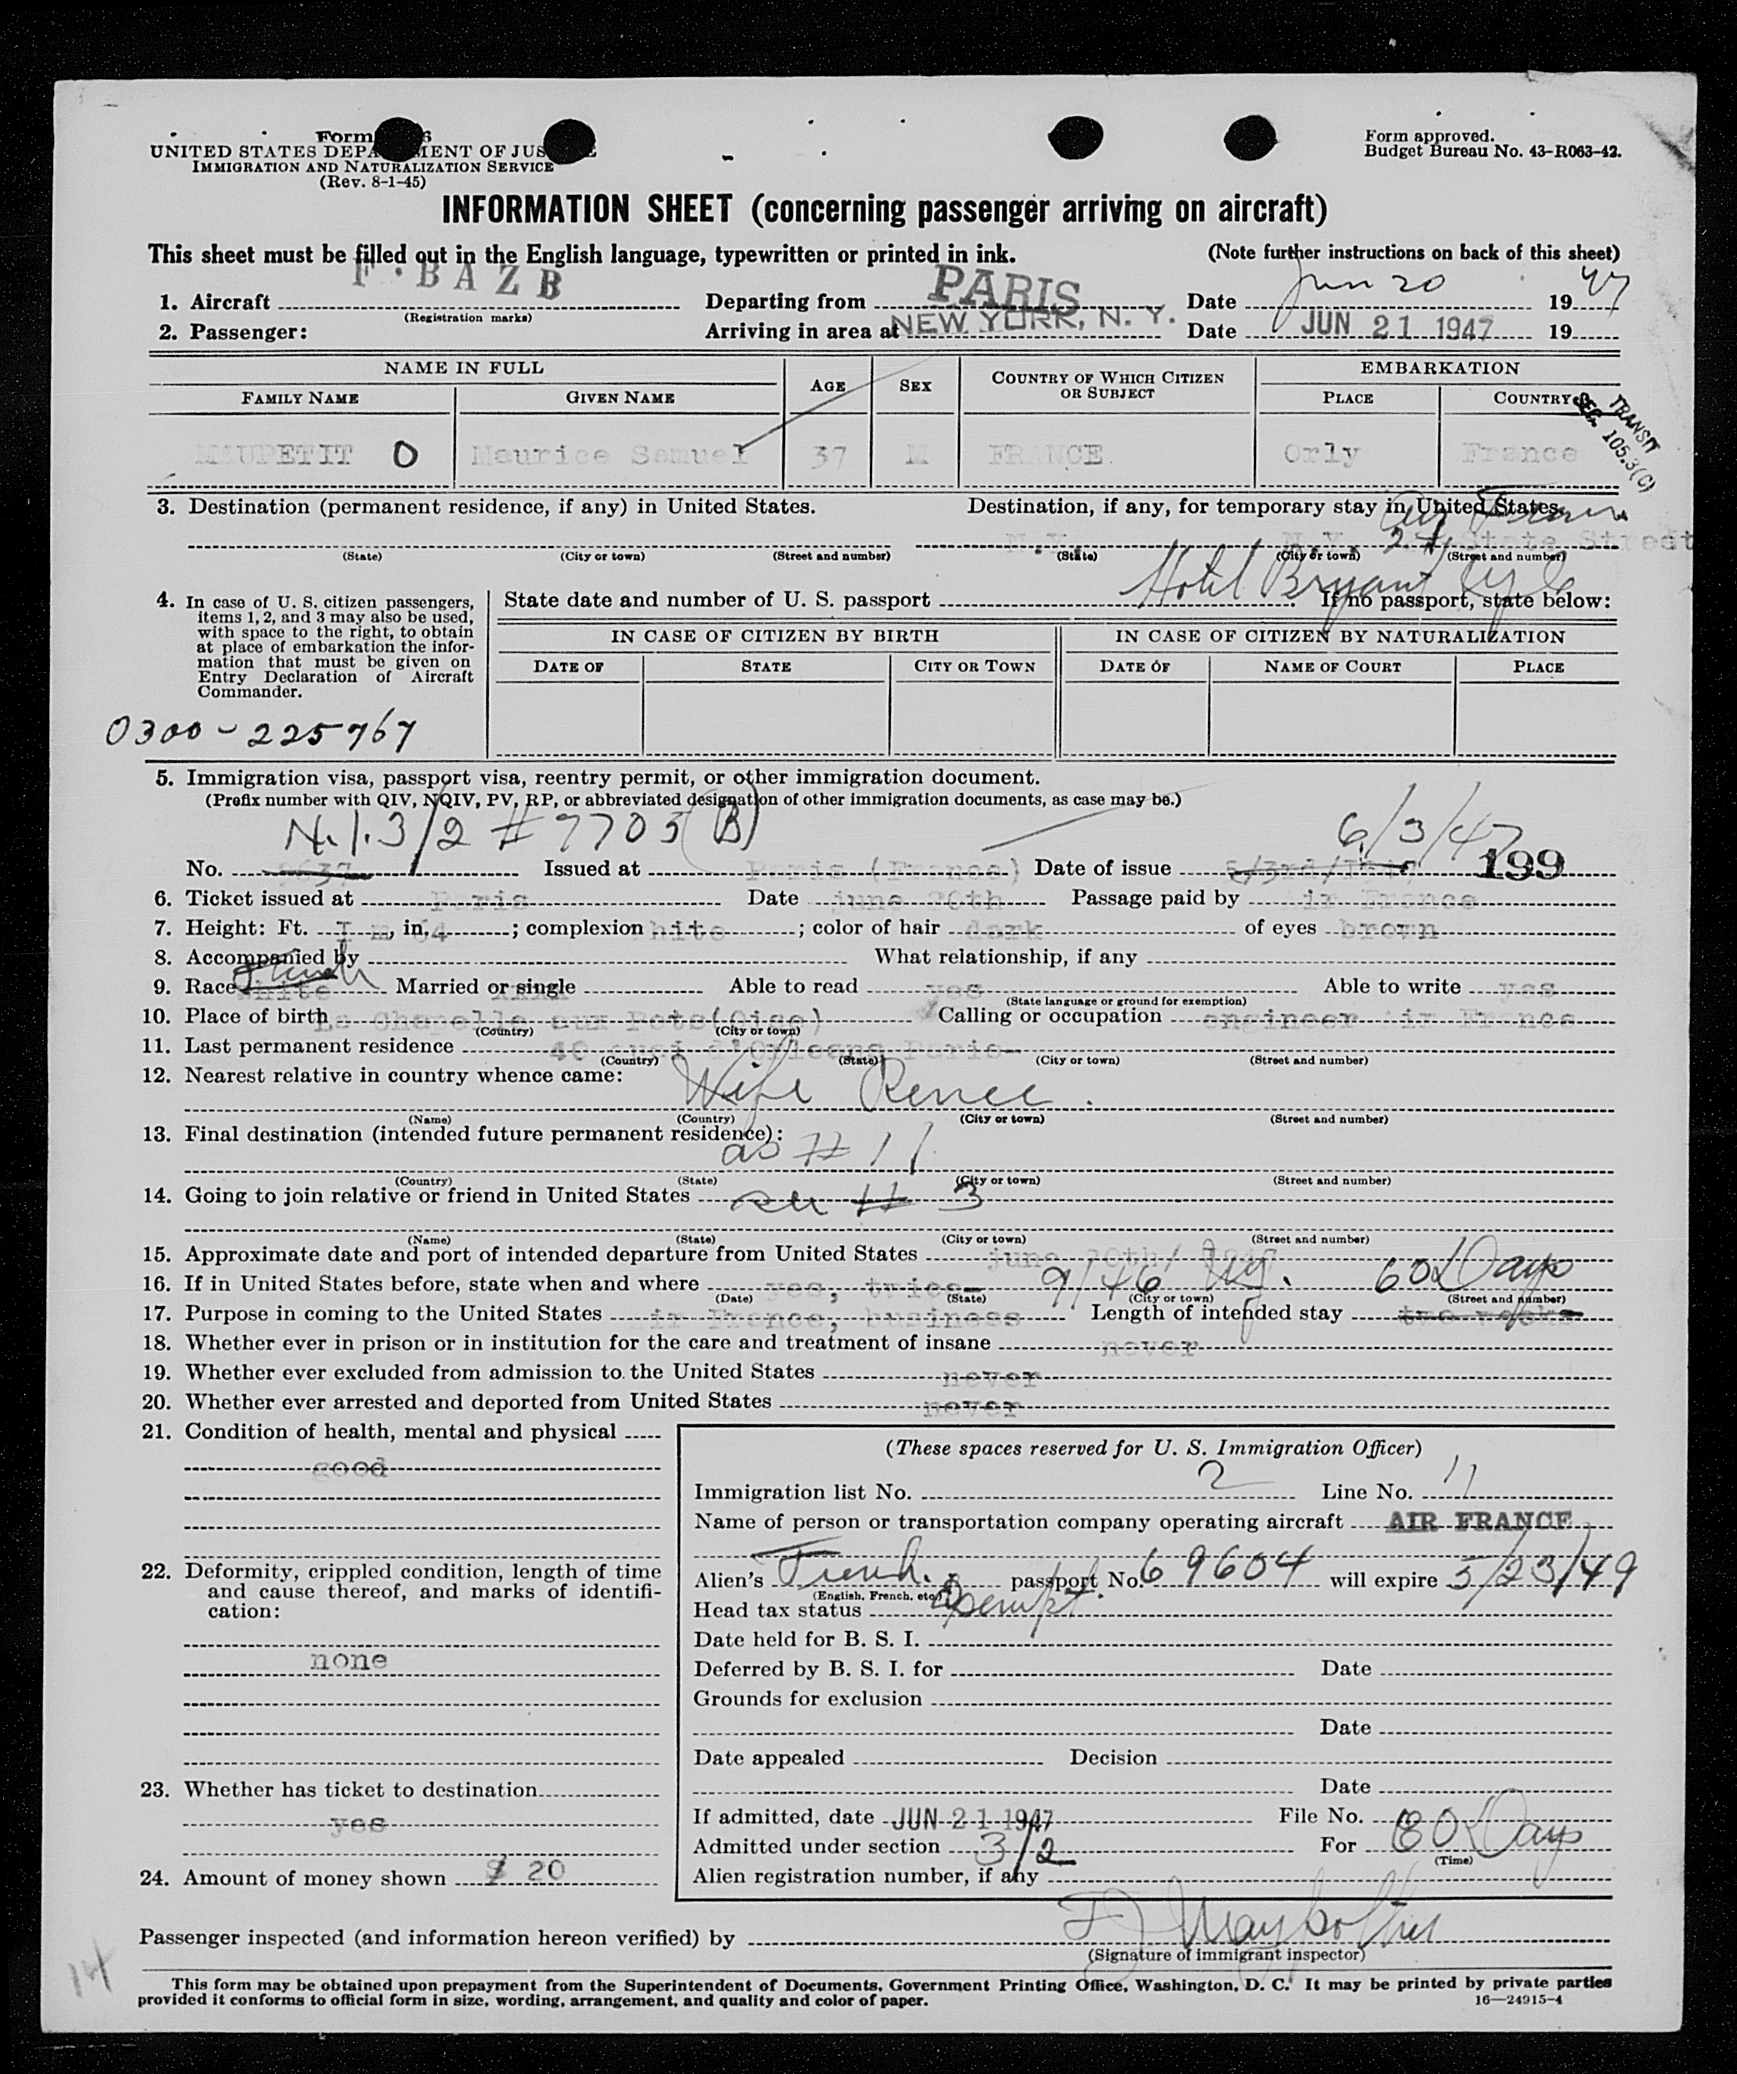 Form
UNITED STATES DEPARTMENT OF JUSTICE
IMMIGRATION AND NATURALIZATION SERVICE
(Rev. 8-1-45)
Form approved.
Budget Bureau No. 43-R063-42.
INFORMATION SHEET (concerning passenger arriving on aircraft)
This sheet must be filled out in the English language, typewritten or printed in ink. (Note further instructions on back of this sheet)
1. Aircraft F·BAZB Departing from PARIS Date Jun 20 1947
(Registration marks)
2. Passenger: Arriving in area at NEW YORK, N. Y. Date JUN 21 1947 19
NAME IN FULL AGE SEX COUNTRY OF WHICH CITIZEN OR SUBJECT EMBARKATION
FAMILY NAME GIVEN NAME PLACE COUNTRY
TRANSIT
SEC. 105.3(C)
MAUPETIT O Maurice Samuel 37 M FRANCE Orly France
3. Destination (permanent residence, if any) in United States. Destination, if any, for temporary stay in United States.
Air France
N.Y. N.Y. 24 State Street
(State) (City or town) (Street and number) (State) (City or town) (Street and number)
Hotel Bryant
4. In case of U. S. citizen passengers, items 1, 2, and 3 may also be used, with space to the right, to obtain at place of embarkation the information that must be given on Entry Declaration of Aircraft Commander.
State date and number of U. S. passport If no passport, state below:
IN CASE OF CITIZEN BY BIRTH IN CASE OF CITIZEN BY NATURALIZATION
DATE OF STATE CITY OR TOWN DATE OF NAME OF COURT PLACE
0300-225767
5. Immigration visa, passport visa, reentry permit, or other immigration document.
(Prefix number with QIV, NQIV, PV, RP, or abbreviated designation of other immigration documents, as case may be.)
N.I. 3/2 # 7705 (B) 6/3/47
No. 9637 Issued at Paris (France) Date of issue 199
6. Ticket issued at Paris Date june 20th Passage paid by Air France
7. Height: Ft. I m, in. 64; complexion white; color of hair dark of eyes brown
8. Accompanied by What relationship, if any
9. Race white French Married or single Able to read yes Able to write yes
(State language or ground for exemption)
10. Place of birth La Chapelle aux Pots (Oise) Calling or occupation engineer Air France
(Country) (City or town)
11. Last permanent residence 40 quai d'Orleans Paris
(Country) (State) (City or town) (Street and number)
12. Nearest relative in country whence came:
Wife Renee
(Name) (Country) (City or town) (Street and number)
13. Final destination (intended future permanent residence):
as # 11
(Country) (State) (City or town) (Street and number)
14. Going to join relative or friend in United States see # 3
(Name) (State) (City or town) (Street and number)
15. Approximate date and port of intended departure from United States june 20th/
16. If in United States before, state when and where yes, 9/46 N.Y. 60 Days
(Date) (State) (City or town) (Street and number)
17. Purpose in coming to the United States Air France, business Length of intended stay two weeks
18. Whether ever in prison or in institution for the care and treatment of insane never
19. Whether ever excluded from admission to the United States never
20. Whether ever arrested and deported from United States never
21. Condition of health, mental and physical
good
22. Deformity, crippled condition, length of time and cause thereof, and marks of identification:
none
23. Whether has ticket to destination
yes
24. Amount of money shown $ 20
(These spaces reserved for U. S. Immigration Officer)
Immigration list No. 2 Line No. 11
Name of person or transportation company operating aircraft AIR FRANCE
Alien's French passport No. 69604 will expire 5/23/49
(English, French, etc.)
Head tax status Exempt.
Date held for B. S. I.
Deferred by B. S. I. for Date
Grounds for exclusion
Date
Date appealed Decision
Date
If admitted, date JUN 21 1947 File No.
Admitted under section 3/2 For 60 Days
(Time)
Alien registration number, if any
Passenger inspected (and information hereon verified) by
(Signature of immigrant inspector)
14
This form may be obtained upon prepayment from the Superintendent of Documents, Government Printing Office, Washington, D. C. It may be printed by private parties
provided it conforms to official form in size, wording, arrangement, and quality and color of paper. 16—24915-4